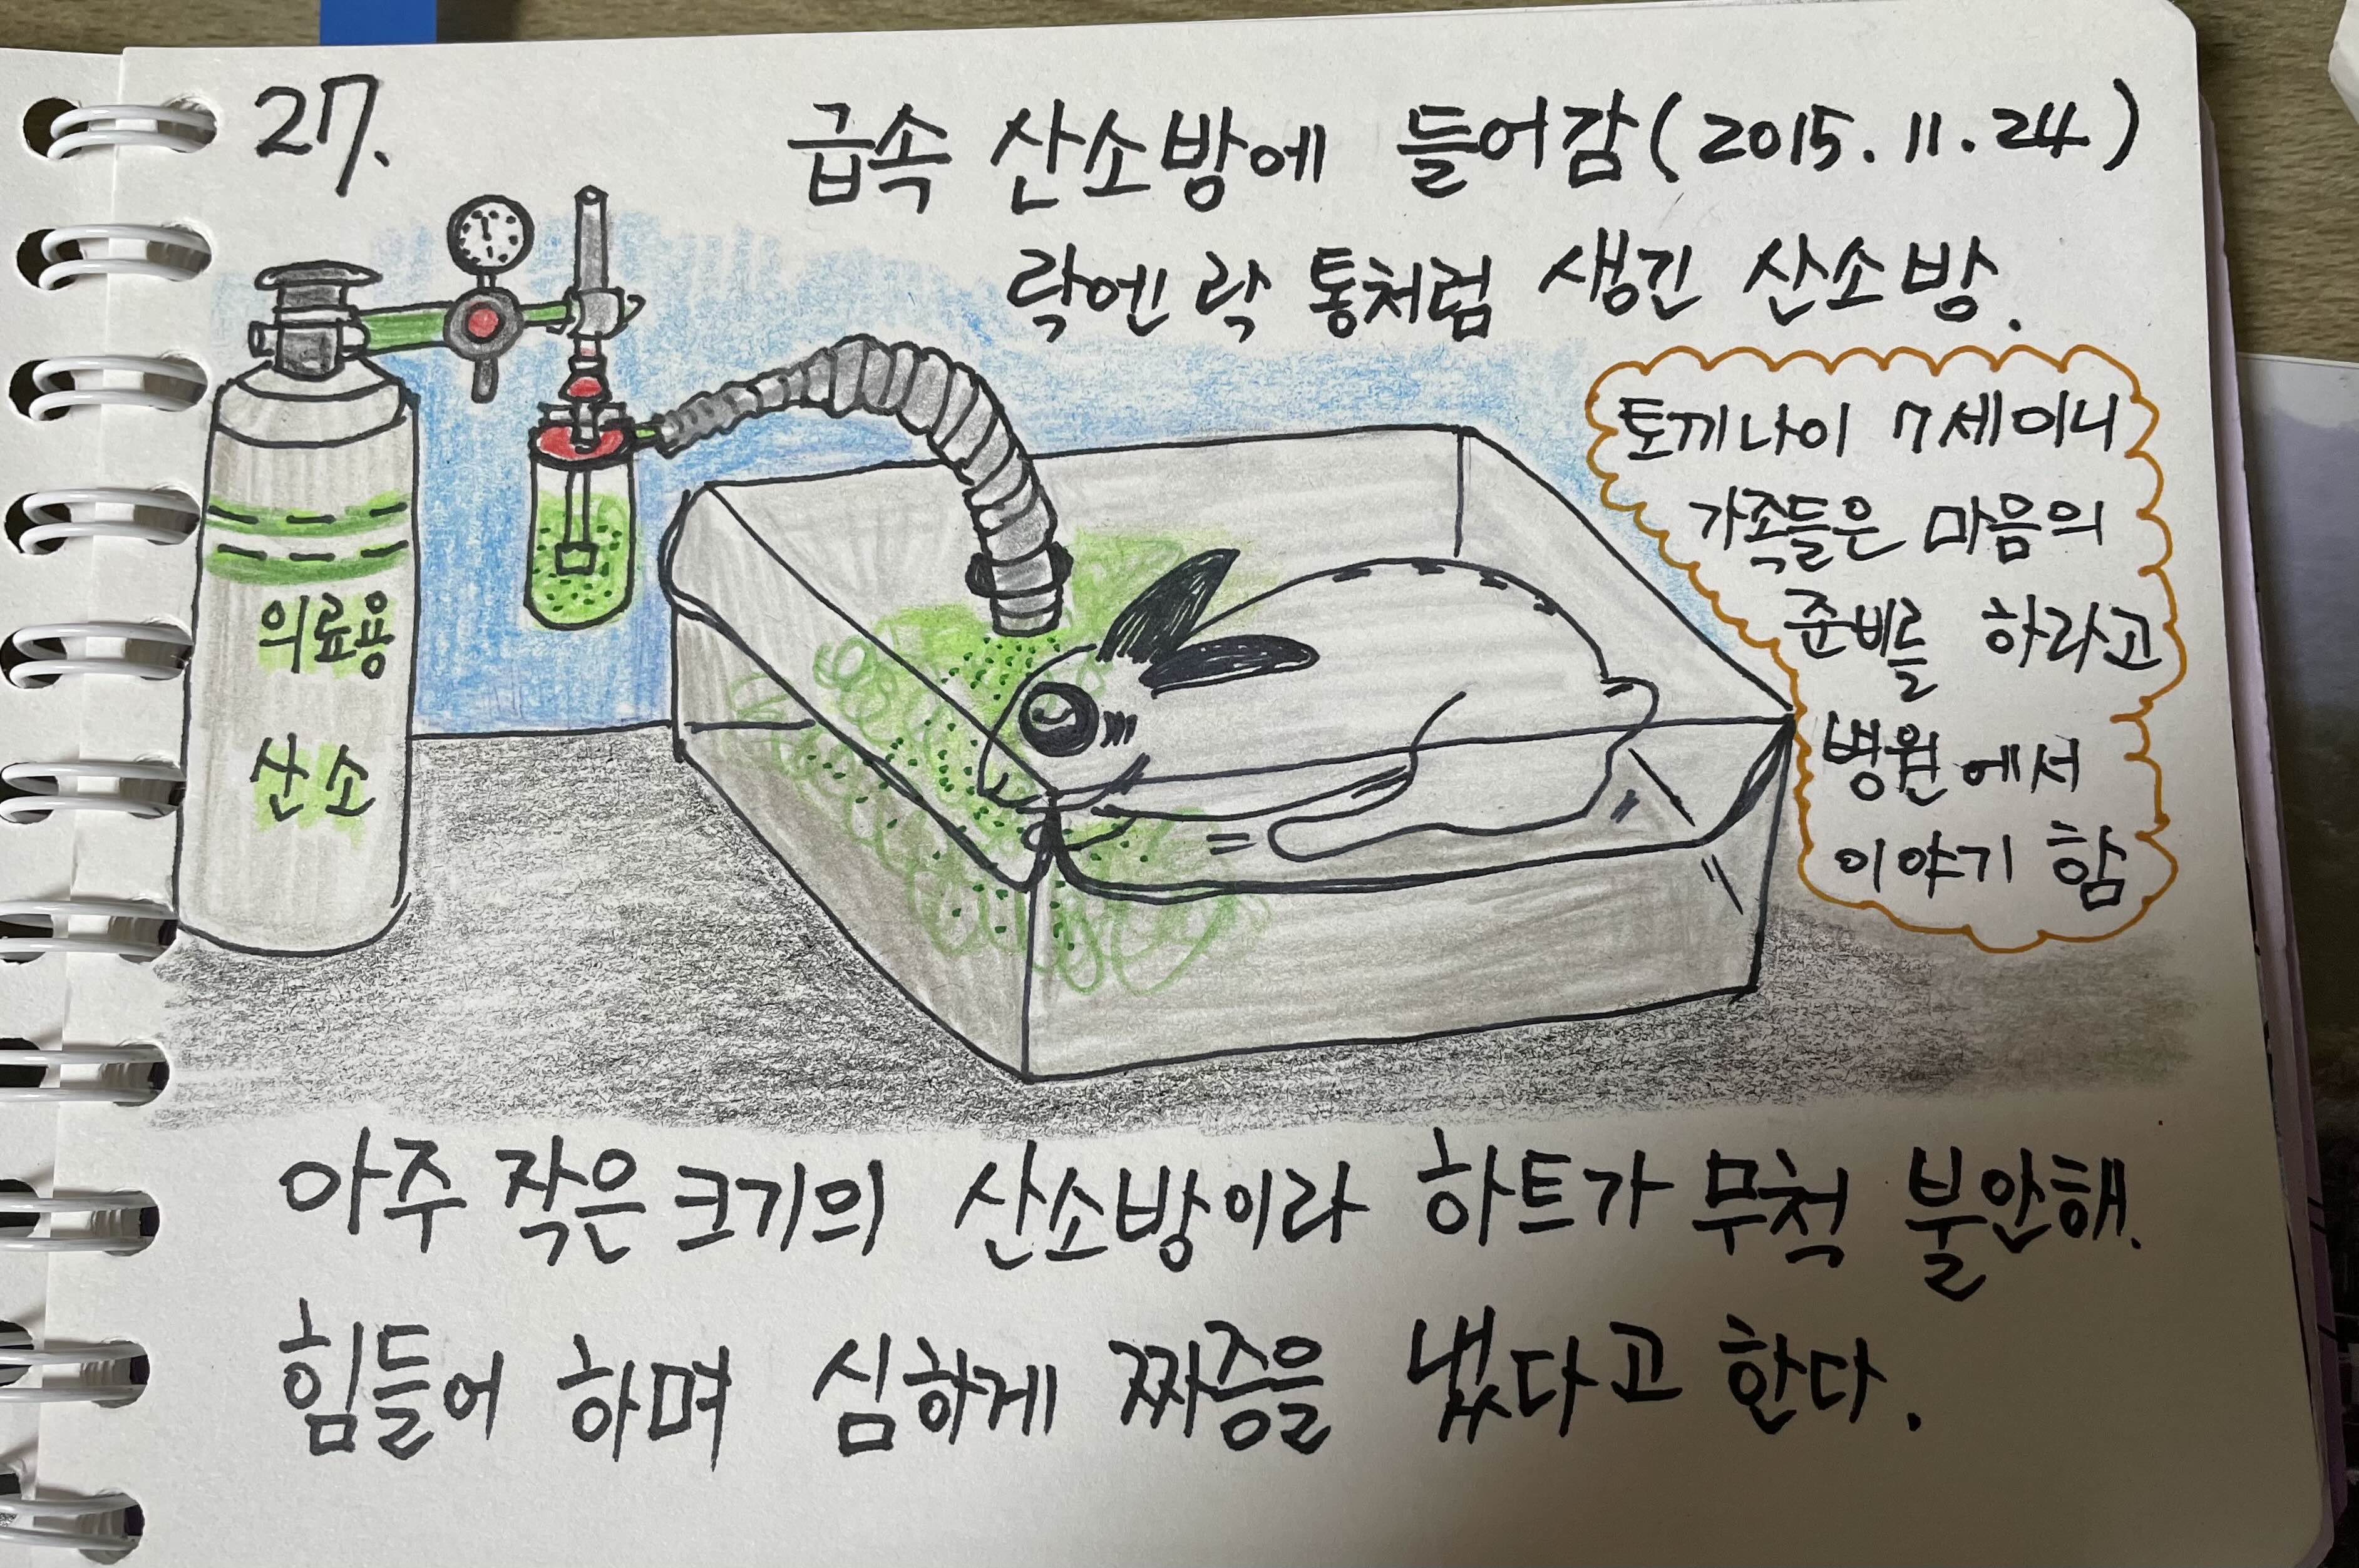 27.
급속 산소방에 들어감(2015.11.24)
락엔락 통처럼 생긴 산소방.
토끼나이 7세이니
가족들은 마음의
준비를 하라고
병원에서
이야기 함
의료용
산소
아주 작은 크기의 산소방이라 하트가 무척 불안해.
힘들어 하며 심하게 짜증을 냈다고 한다.